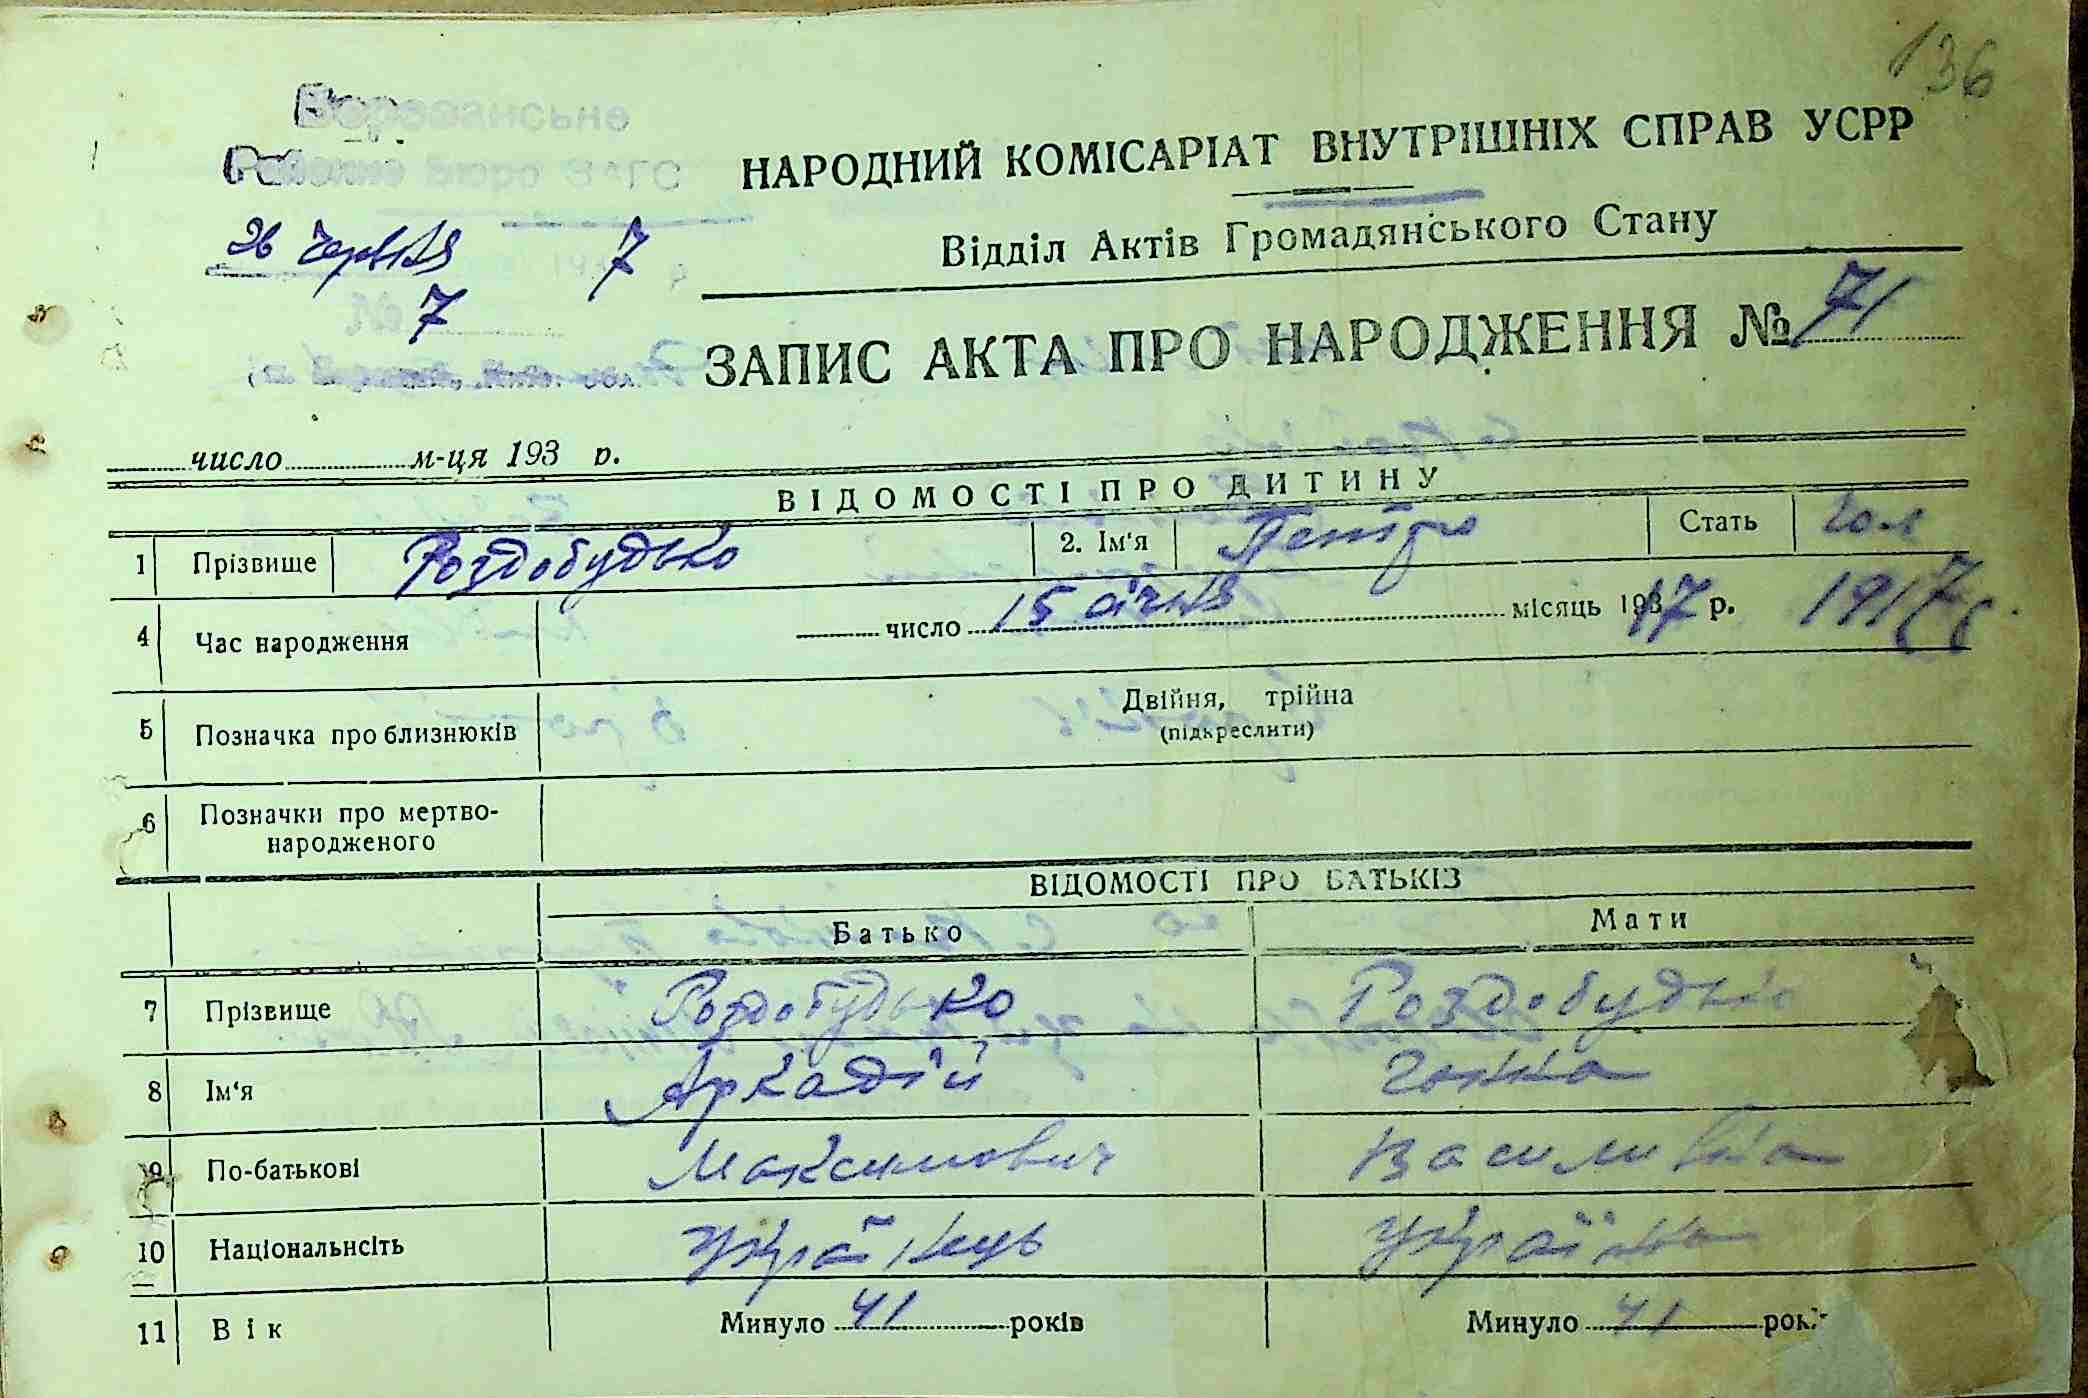 136
Березанське
Районне Бюро ЗАГС
26 червня 7
№ 7
НАРОДНИЙ КОМІСАРІАТ ВНУТРІШНІХ СПРАВ УСРР
Відділ Актів Громадянського Стану
ЗАПИС АКТА ПРО НАРОДЖЕННЯ № 71
число м-ця 193 р.
ВІДОМОСТІ ПРО ДИТИНУ
1 Прізвище Роздобудько 2. Ім'я Петро Стать чол
4 Час народження число 15 січня місяць 1917 р. 1917
5 Позначка про близнюків Двійня, трійна
(підкреслити)
6 Позначки про мертво-
народженого
ВІДОМОСТІ ПРО БАТЬКІВ
Батько Мати
7 Прізвище Роздобудько Роздобудько
8 Ім'я Аркадій Ганна
9 По-батькові Максимович Василивна
10 Національнсіть Українець Українка
11 Вік Минуло 41 років Минуло 41 рок